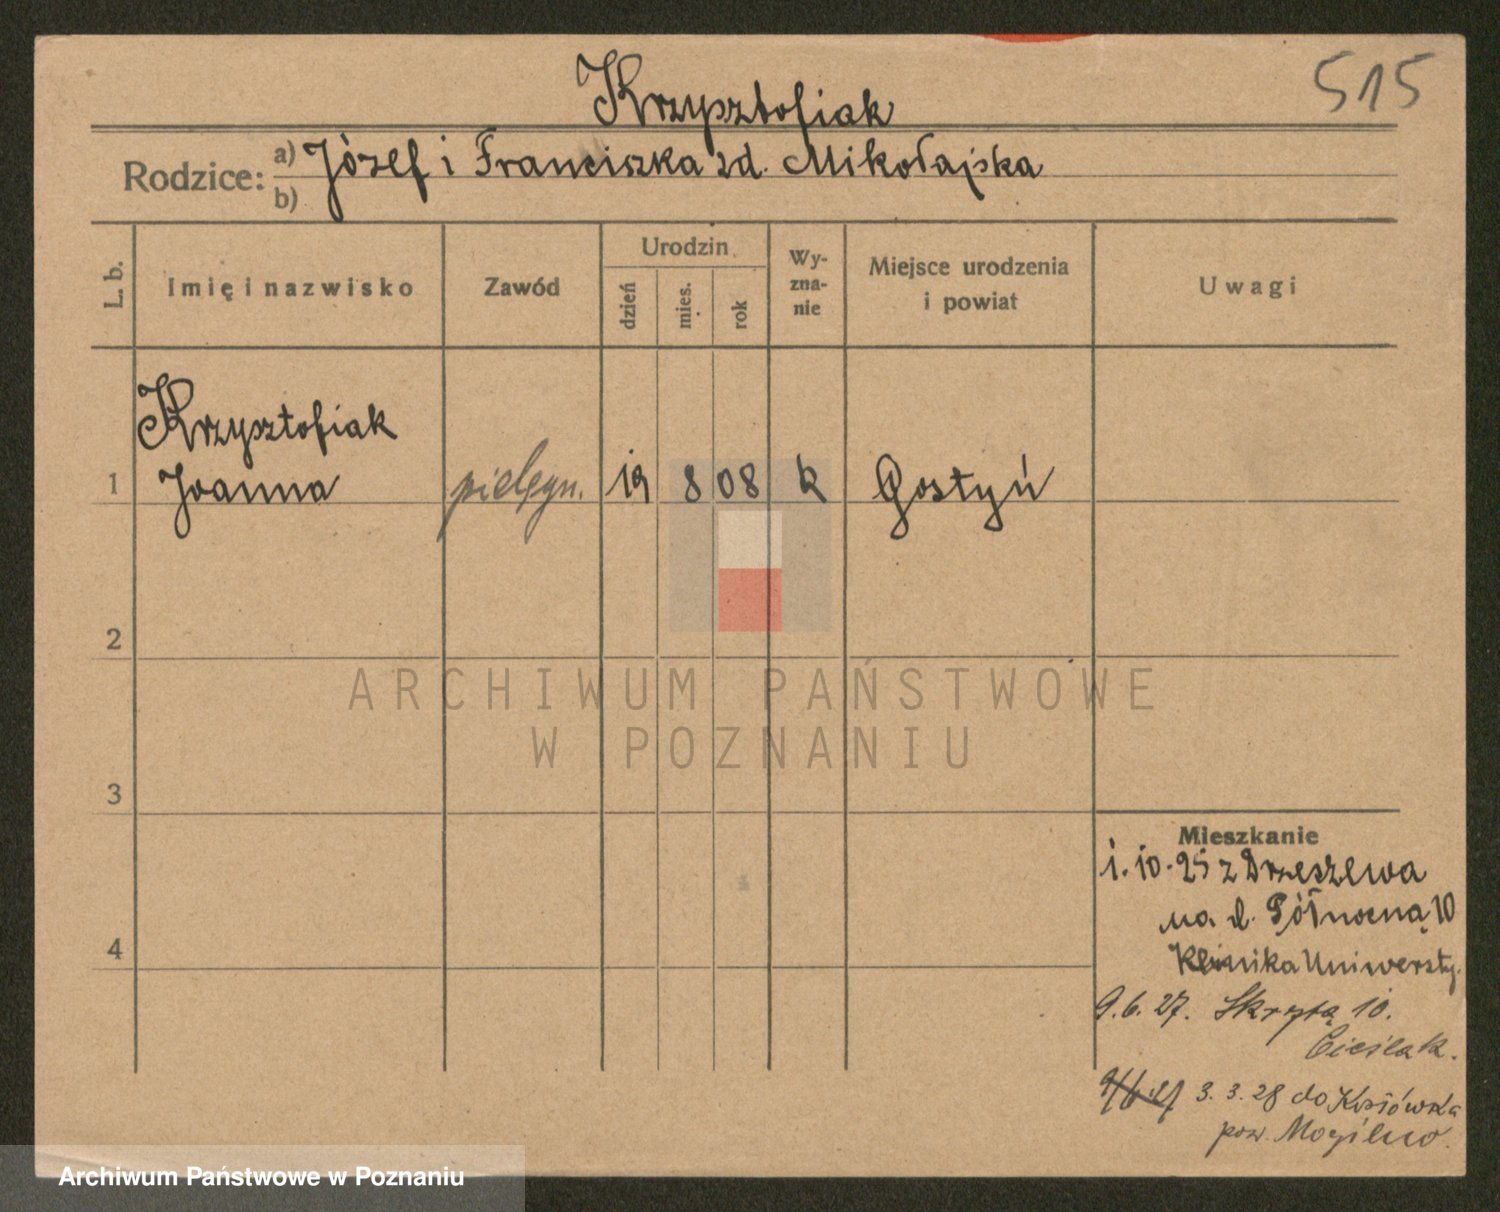 515
Krzysztofiak
Rodzice: a) Józef i Franciszka zd. Mikołajska
b)
L. b.
Imię i nazwisko
Zawód
Urodzin
dzień
mies.
rok
Wy-
zna-
nie
Miejsce urodzenia
i powiat
Uwagi
Krzysztofiak
1 Joanna pielęgn. 19 8 08 k Gostyń
2
ARCHIWUM PAŃSTWOWE
W POZNANIU
3
Mieszkanie
1.10.25 z Drzeszewa
na ul. Północną 10
Klinika Uniwersty.
4
9.6.27. Skrytą 10.
Cieślak.
3.3.28 do
pow. Mogilno.
Archiwum Państwowe w Poznaniu